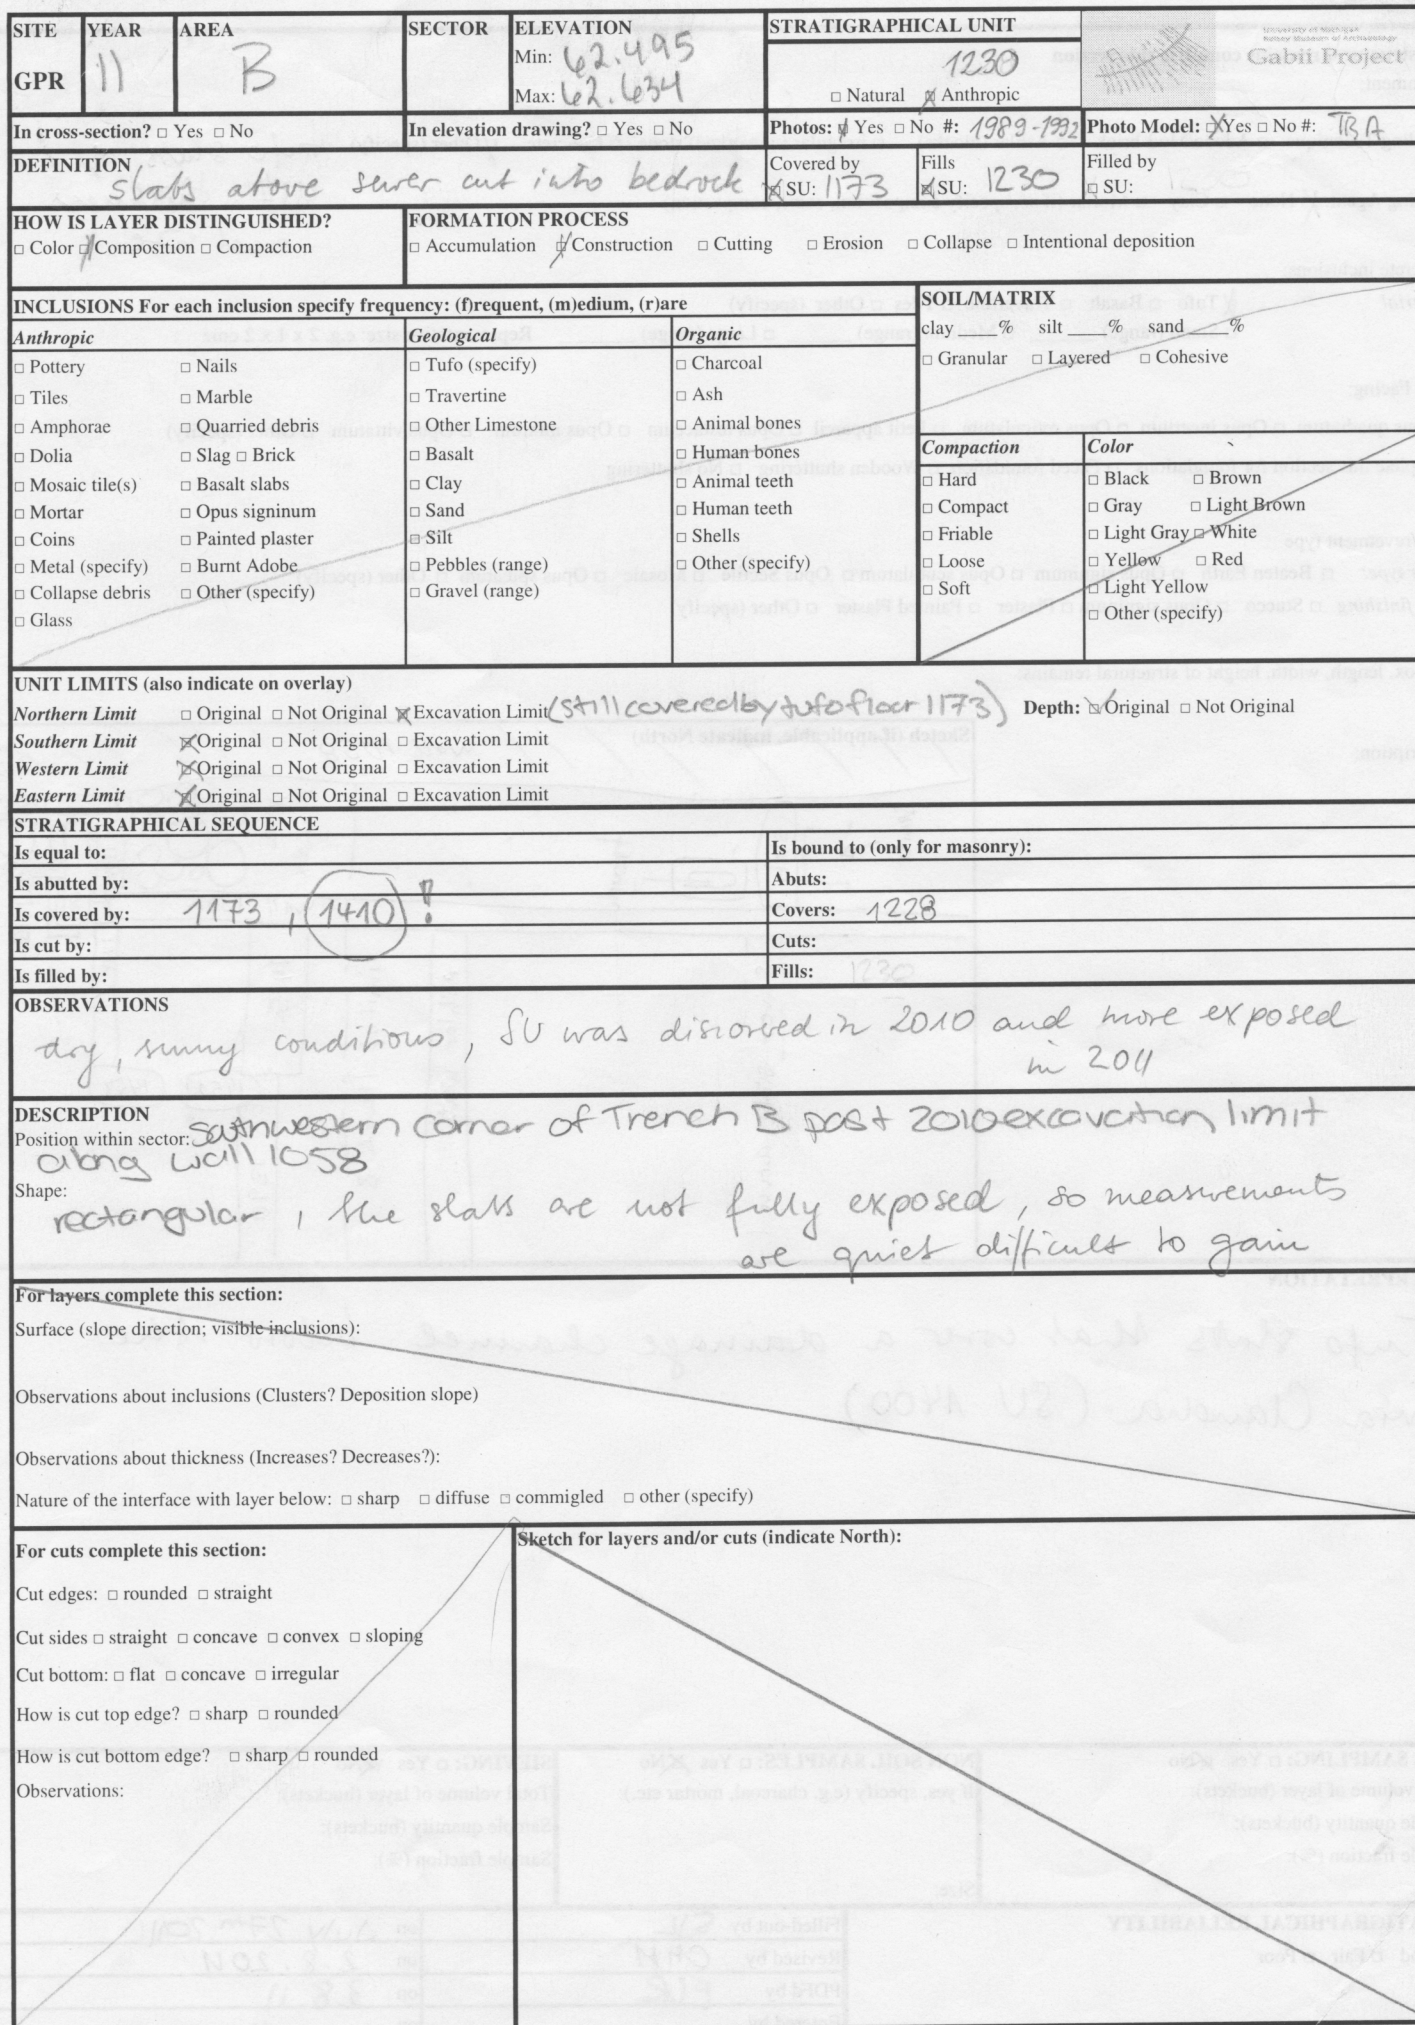 SITE YEAR AREA SECTOR ELEVATION STRATIGRAPHICAL UNIT
GPR 11 B Min: 62.495 Max: 62.634 1230
□ Natural ☒ Anthropic
University of Michigan
Kelsey Museum of Archaeology
Gabii Project
In cross-section? □ Yes □ No In elevation drawing? □ Yes □ No Photos: ☒ Yes □ No #: 1989-1992 Photo Model: ☒ Yes □ No #: TBA
DEFINITION slabs above sewer cut into bedrock Covered by ☒ SU: 1173 Fills ☒ SU: 1230 Filled by □ SU:
HOW IS LAYER DISTINGUISHED? FORMATION PROCESS
□ Color ☒ Composition □ Compaction □ Accumulation ☒ Construction □ Cutting □ Erosion □ Collapse □ Intentional deposition
INCLUSIONS For each inclusion specify frequency: (f)requent, (m)edium, (r)are
Anthropic
□ Pottery □ Nails
□ Tiles □ Marble
□ Amphorae □ Quarried debris
□ Dolia □ Slag □ Brick
□ Mosaic tile(s) □ Basalt slabs
□ Mortar □ Opus signinum
□ Coins □ Painted plaster
□ Metal (specify) □ Burnt Adobe
□ Collapse debris □ Other (specify)
□ Glass
Geological
□ Tufo (specify)
□ Travertine
□ Other Limestone
□ Basalt
□ Clay
□ Sand
□ Silt
□ Pebbles (range)
□ Gravel (range)
Organic
□ Charcoal
□ Ash
□ Animal bones
□ Human bones
□ Animal teeth
□ Human teeth
□ Shells
□ Other (specify)
SOIL/MATRIX
clay ____% silt ____% sand ____%
□ Granular □ Layered □ Cohesive
Compaction
□ Hard
□ Compact
□ Friable
□ Loose
□ Soft
Color
□ Black □ Brown
□ Gray □ Light Brown
□ Light Gray □ White
□ Yellow □ Red
□ Light Yellow
□ Other (specify)
UNIT LIMITS (also indicate on overlay)
Northern Limit □ Original □ Not Original ☒ Excavation Limit (still covered by tufo floor 1173) Depth: ☒ Original □ Not Original
Southern Limit ☒ Original □ Not Original □ Excavation Limit
Western Limit ☒ Original □ Not Original □ Excavation Limit
Eastern Limit ☒ Original □ Not Original □ Excavation Limit
STRATIGRAPHICAL SEQUENCE
Is equal to: Is bound to (only for masonry):
Is abutted by: Abuts:
Is covered by: 1173, 1410 ! Covers: 1228
Is cut by: Cuts:
Is filled by: Fills: 1230
OBSERVATIONS
dry, sunny conditions, SU was discorved in 2010 and more exposed
in 2011
DESCRIPTION
Position within sector: southwestern corner of Trench B past 2010 excavation limit
along wall 1058
Shape:
rectangular, the slabs are not fully exposed, so measurements
are quiet difficult to gain
For layers complete this section:
Surface (slope direction; visible inclusions):
Observations about inclusions (Clusters? Deposition slope)
Observations about thickness (Increases? Decreases?):
Nature of the interface with layer below: □ sharp □ diffuse □ commigled □ other (specify)
For cuts complete this section:
Cut edges: □ rounded □ straight
Cut sides □ straight □ concave □ convex □ sloping
Cut bottom: □ flat □ concave □ irregular
How is cut top edge? □ sharp □ rounded
How is cut bottom edge? □ sharp □ rounded
Observations:
Sketch for layers and/or cuts (indicate North):